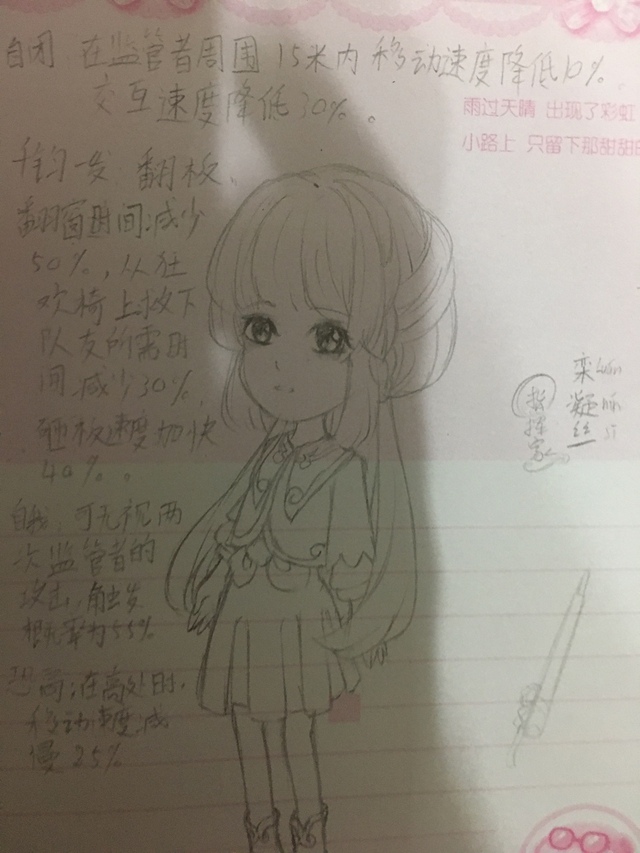 自闭 在监管者周围15米内移动速度降低10%
交互速度降低30%。
雨过天晴 出现了彩虹
小路上 只留下那甜甜的
千钧一发 翻板,
翻窗时间减少
50%,从狂
欢椅上救下
队友所需时
间减少30%,
砸板速度加快
40%。
自我:可无视两
次监管者的
攻击,触发
概率为55%
恐高:在高处时,
移动速度减
慢25%
栾 luán
凝 níng
丝 sī
指挥家